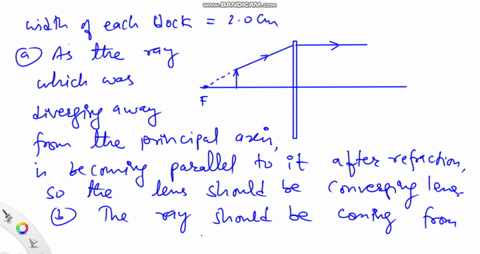 www.BANDICAM.com
width of each block = 2.0 cm
(a) As the ray
which was
diverging away
F
from the principal axis,
is becoming parallel to it after refraction,
so the lens should be converging lens
(b) The ray should be coming from